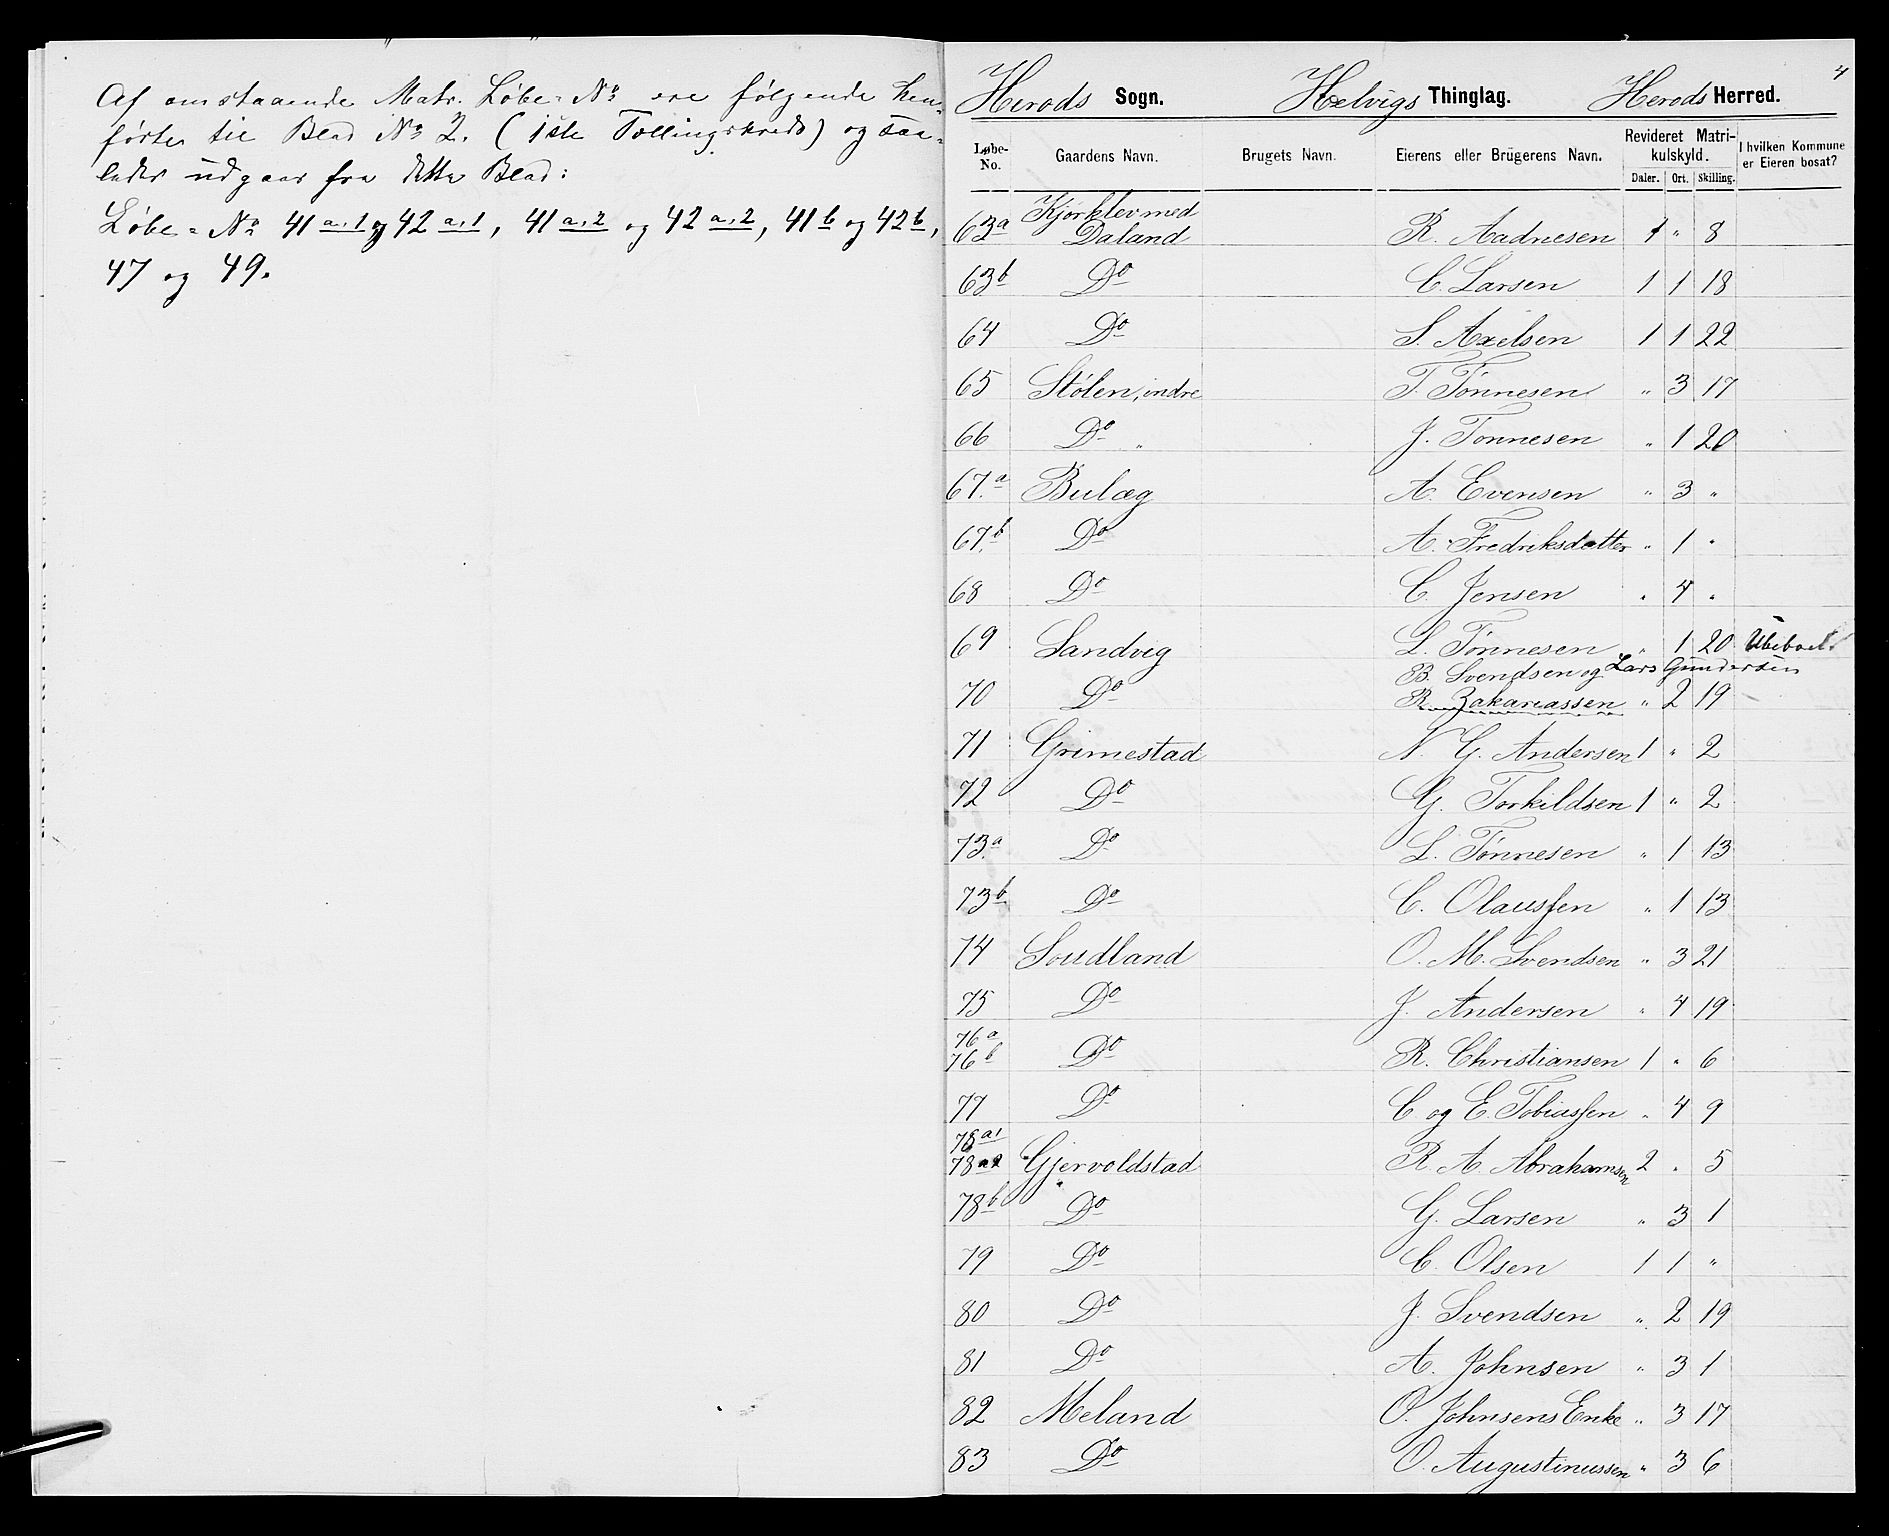 Af omstaaende Matr. Løbe-No ere følgende hen-
førte til Blad No 2. (1ste Tællingskreds) og saa-
ledes udgaar fra dette Blad:
Løbe-No 41 a.1 og 42 a.1, 41 a.2 og 42 a.2, 41 b og 42 b,
47 og 49.
4
Herods Sogn. Helvigs Thinglag. Herods Herred.
Løbe-No. Gaardens Navn. Brugets Navn. Eierens eller Brügerens Navn. Revideret Matrikulskyld. I hvilken Kommune er Eieren bosat?
Daler. Ort. Skilling.
63a Kjørklev med Daland R. Aadnesen 1 " 8
63b Do C. Larsen 1 1 18
64 Do S. Axelsen 1 1 22
65 Stølen, indre T. Tønnesen " 3 17
66 Do " J. Tønnesen " 1 20
67.a Bulæg A. Evensen " 3 "
67.b Do A. Fredriksdatter " 1 "
68 Do C. Jensen " 4 "
69 Sandvig L. Tønnesen " 1 20
B. Svendsen og Lars Gundersen
70 Do R. Zakariassen " 2 19
71 Grimestad N. G. Andersen 1 " 2
72 Do G. Torkildsen 1 " 2
73.a Do L. Tønnesen " 1 13
73b Do C. Olaussen " 1 13
74 Soudland O. M. Svendsen " 3 21
75 Do J. Andersen " 4 19
76a
76b Do R. Christiansen 1 " 6
77 Do C. og E. Tobiassen " 4 9
78 a1
78 a2 Gjervoldstad R. A. Abrahamsen 2 " 5
78b Do G. Larsen " 3 1
79 Do C. Olsen 1 1 "
80 Do J. Svendsen " 2 19
81 Do A. Johnsen " 3 1
82 Meland O. Johnsens Enke " 3 17
83 Do O. Augustinussen " 3 6